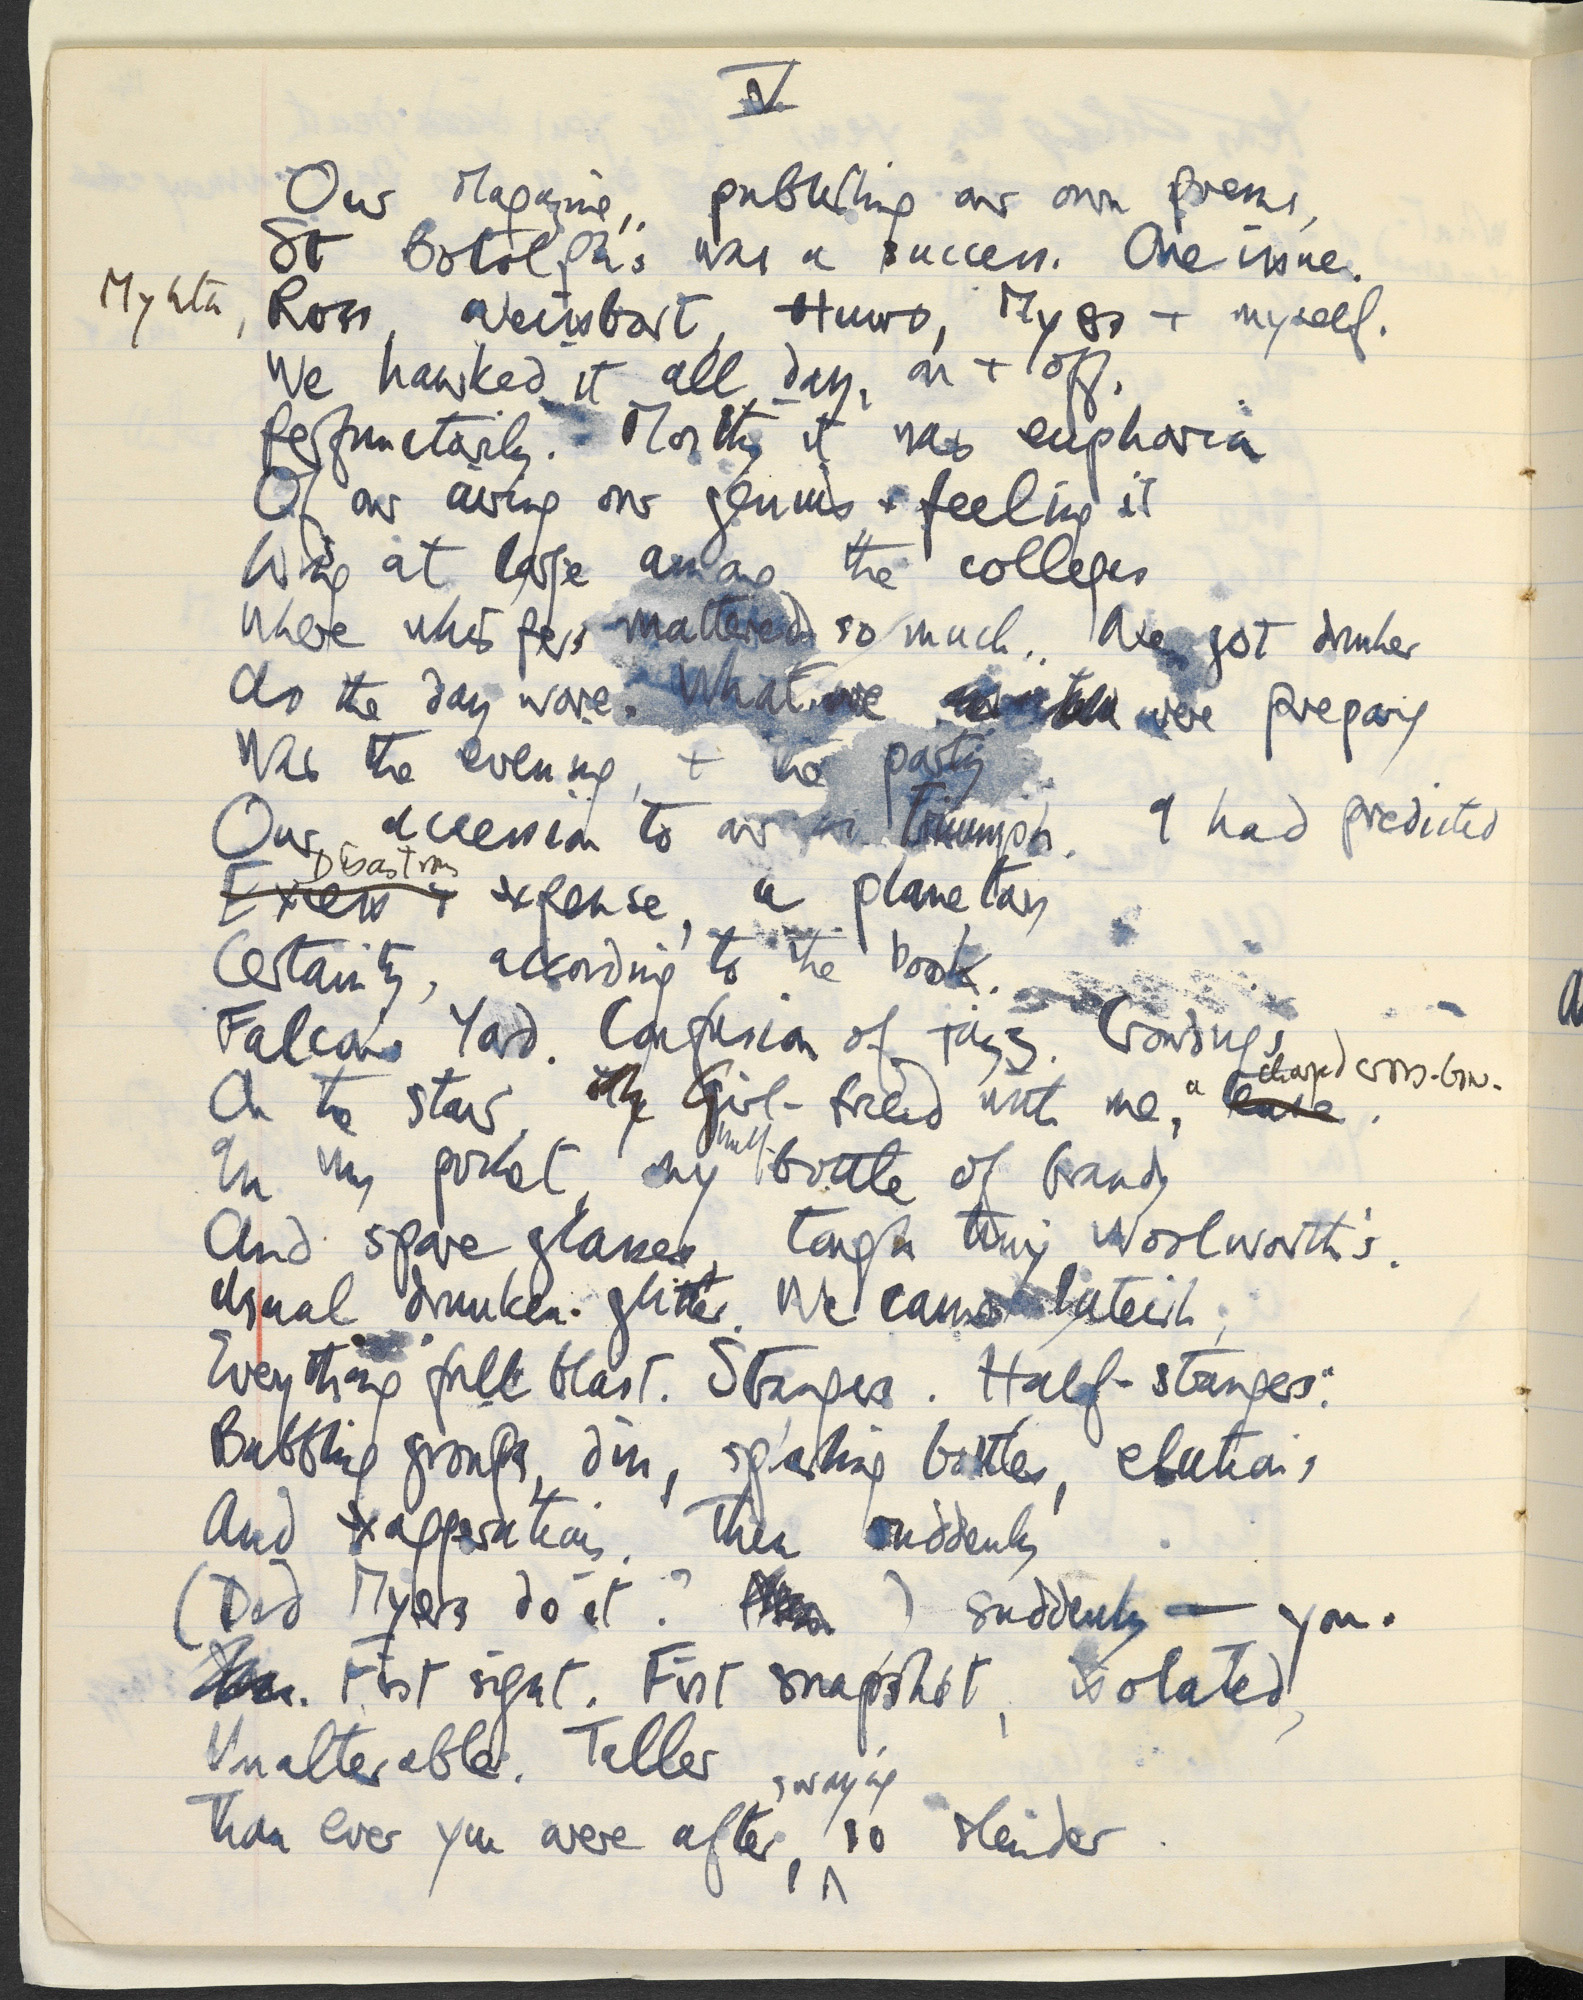 V
Our Magazine, publishing our own poems,
St Botolph's was a success. One issue.
Myhta, Ross, Weissbort, Huws, Myers + myself.
We hawked it all day, on + off,
Perfunctorily. Mostly it was euphoria
Of our airing our genius + feeling it
Living at large among the colleges
Where whispers mattered so much. We got drunker
As the day wore. What we were preparing
Was the evening, + the party
Our accession to our triumph. I had predicted
Excess + Disastrous expense, a planetary
Certainty, according to the book.
Falcon Yard. Confusion of jazz. Crowdings
On the stair. Girl-friend with me, a charged cross-bow.
In my pocket, my half-bottle of brandy
And spare glasses, tough tiny Woolworth's.
Usual drunken glitter. We came lateish,
Everything full blast. Strangers. Half-strangers.
Bubbling groups, din, sploshing bottles, elations
And exaggerations. Then suddenly
(Did Myers do it? ) suddenly — you.
First sight. First snapshot, isolated,
Unalterable. Taller
Than ever you were after, swaying so slender